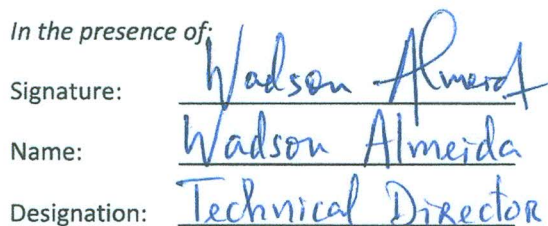 In the presence of:
Signature: Wadson Almeida
Name: Wadson Almeida
Designation: Technical Director